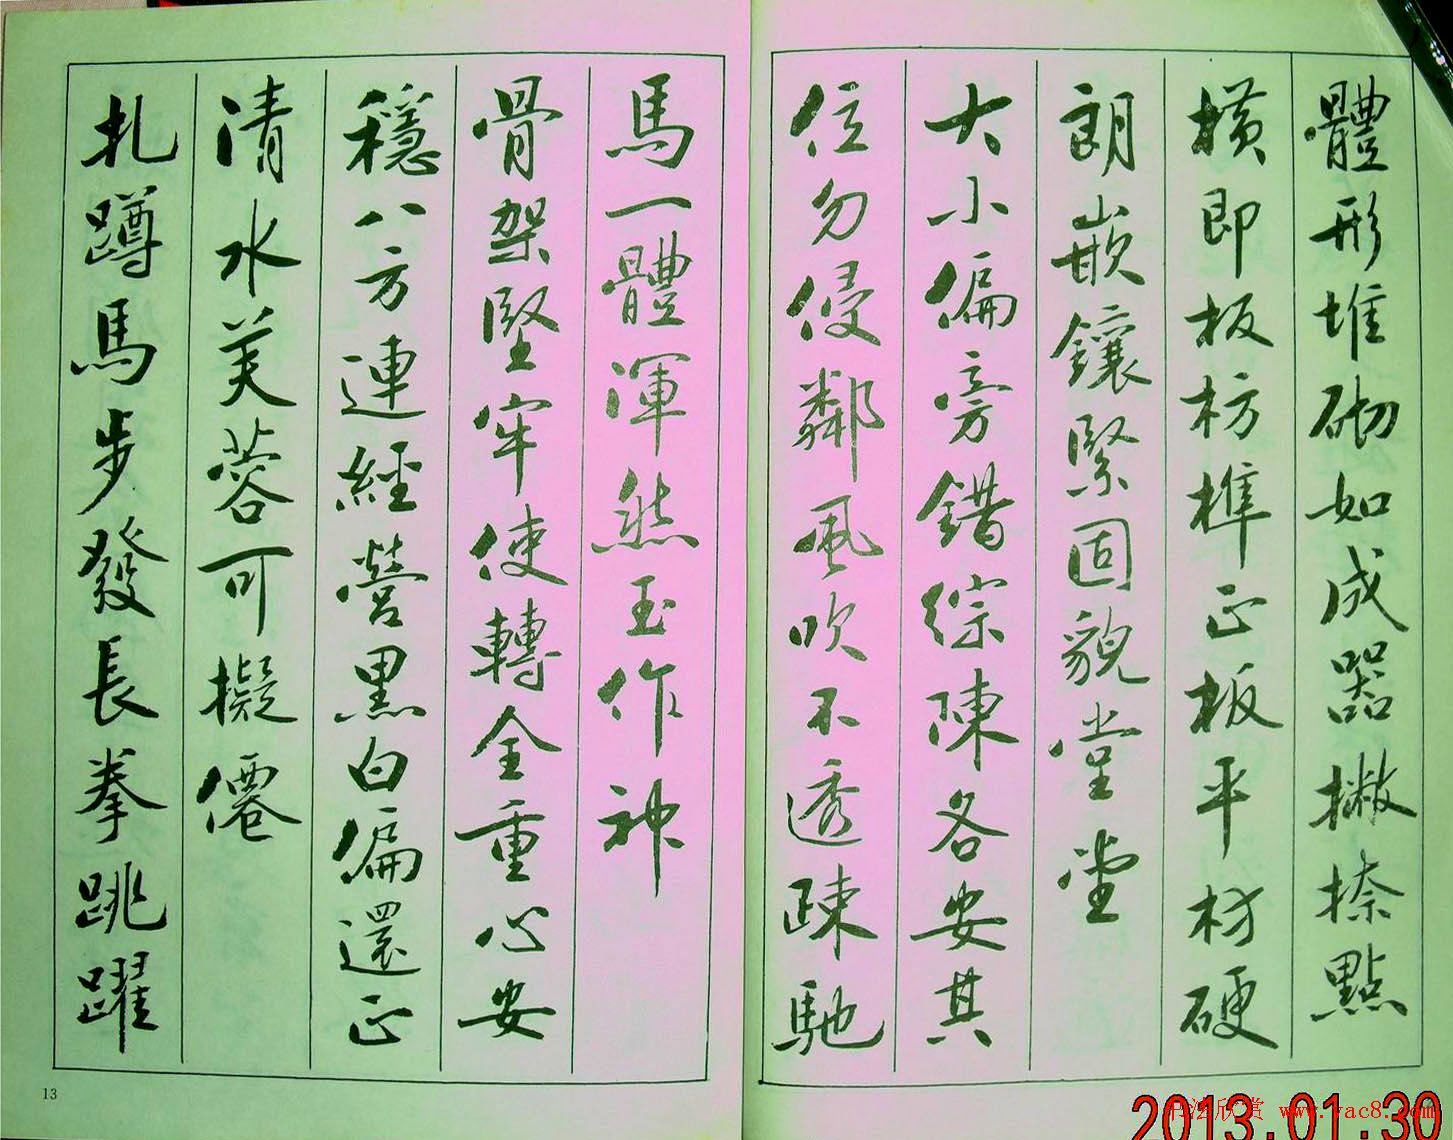 體形堆砌如成器撇捺點
橫即板枋榫正板平材硬
朗嵌鑲緊固貌堂堂
大小偏旁錯綜陳各安其
位勿侵鄰風吹不透疎馳
馬一體渾然玉作神
骨架堅牢使轉全重心安
穩八方連經營黑白偏還正
清水芙蓉可擬僊
扎蹲馬步發長拳跳躍
13
2013.01.30
书法欣赏 www.yac8.com